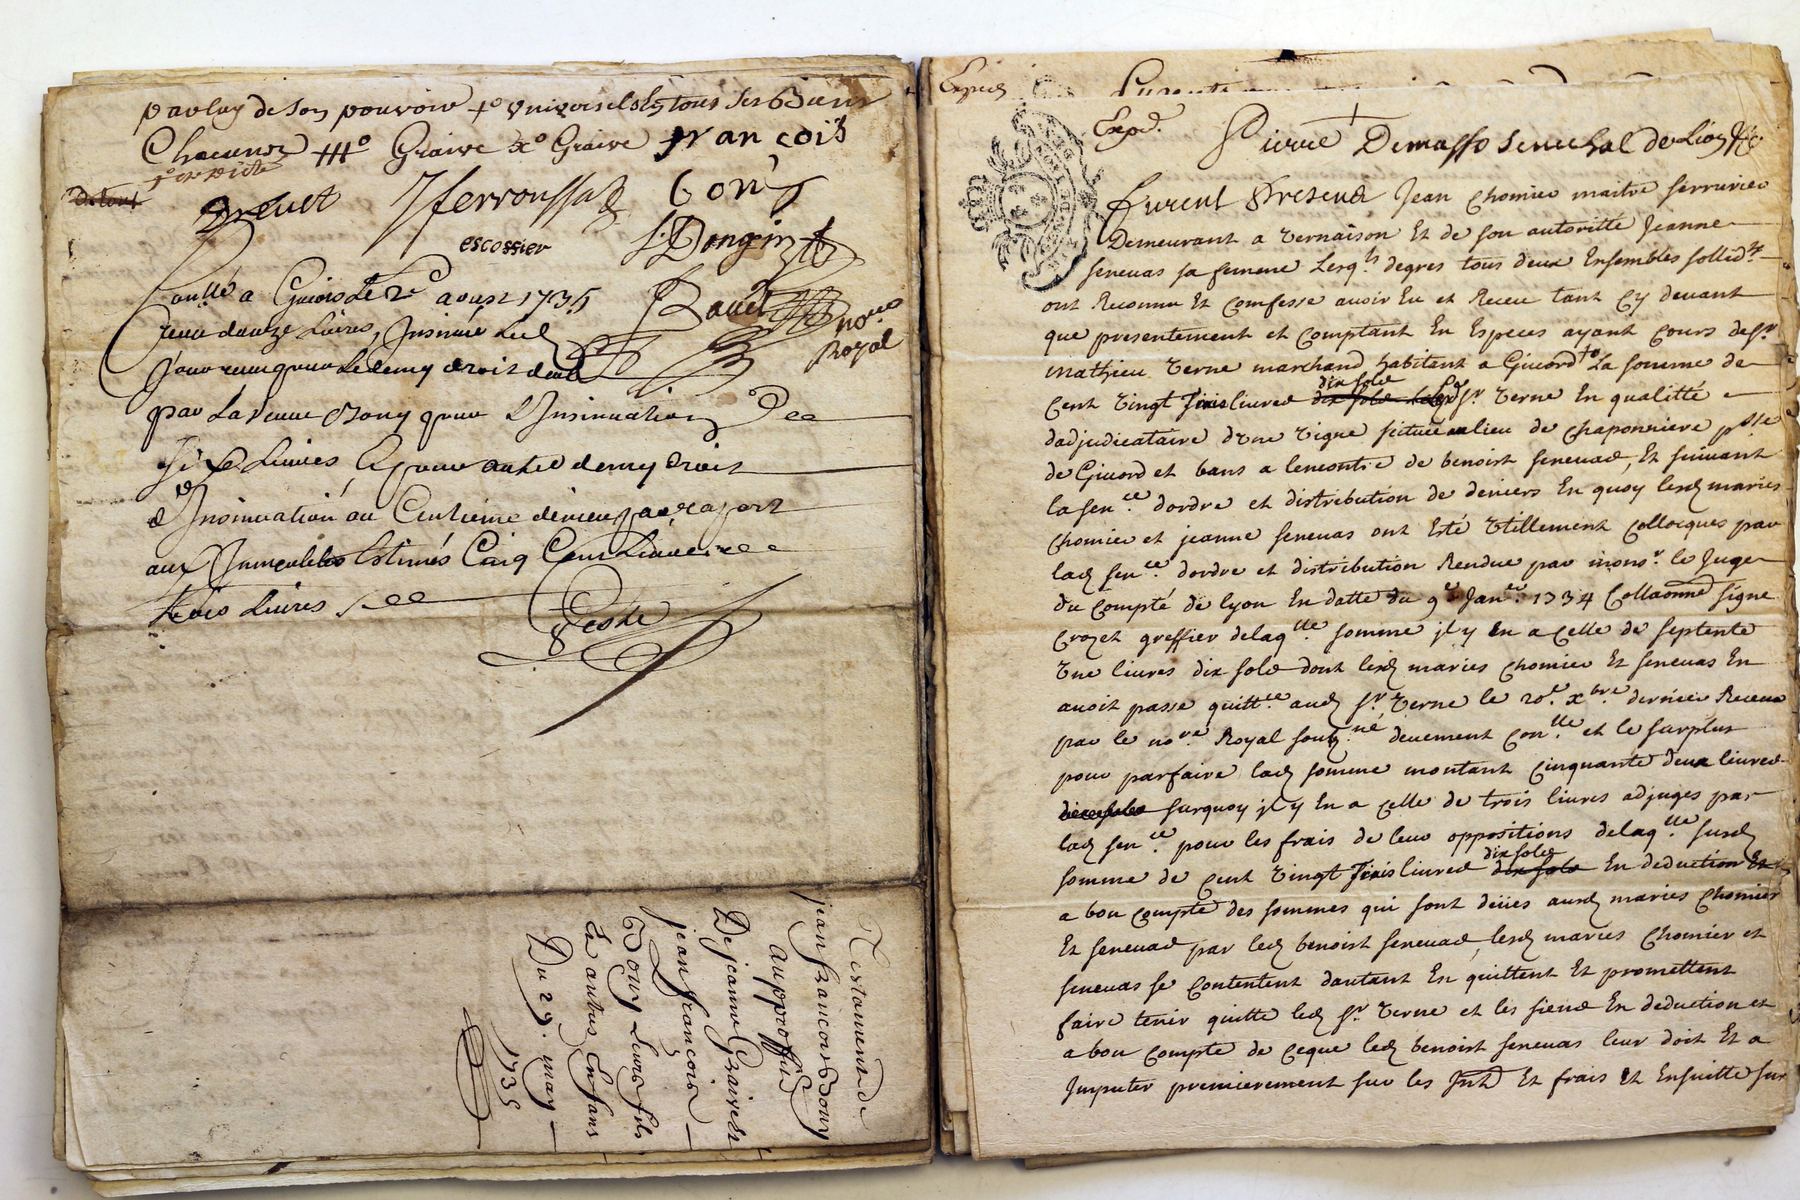 par luy de son pouvoir universels en tous ses Biens
Chacuner Graive Graive françois
detout
dreuet ferroussat bony
escossier Dongin
Conllé a Givors le 2e aoust 1735 Bauel nore
Receu douze livres, Insinué led Royal
J'auray receu pour le demy droit deub
par La veuve Bony pour L'Insinuation
Six Livres, & pour autre demy droit
d'Insinuation au Centieme denier par raport
aux Immeubles Estimés Cinq Cens Livres
trois Livres
Coste
Testament de
jean francois Bony
au proffit
De jeanne Graive et
jean francois
Bony Leurs fils
et autres Enfans
Du 29. may
1735
Exped.
Exped.
Pierre Demasso senechal de Lion &c.
furent Presens Jean Chomier maitre serrurier
Demeurant a Vernaison Et de son autoritte Jeanne
senevas sa femme Lesqls degres tous deux Ensembles sollidrt
ont Reconnu Et confesse avoir Eu et Receu tant Cy devant
que presentement et comptant En Especes ayant cours de Sr
mathieu Verne marchand habitant a Givord La somme de
Cent Vingt trois livres dix sols Led Sr Verne En qualitté
dadjudicataire d'une Vigne scituée au lieu de Chaponniere psse
de Givord et bans a lencontre de benoist senevas, Et suivant
la sence dordre et distribution de deniers En quoy lesd maries
Chomier et jeanne senevas ont Esté Utillement Collocques par
lad sence dordre et distribution Rendue par monsr le Juge
du Compté de lyon En datte du 9e Janer 1734 Collaonné signe
Crozet greffier delaqlle somme jl y En a Celle de septente
Une livres dix sols dont lesd maries Chomier Et senevas En
avoit passé quittce aud Sr Verne le 20e Xbre dernier Receue
par le nore Royal soubné deuement Conlle et le surplus
pour parfaire lad somme montant Cinquante deux livres
surquoy jl y En a celle de trois livres adjuges par
lad sence pour les frais de leur oppositions delaqlle susd
dix sols
somme de Cent Vingt trois livres dix sols En deduction Et
a bon Compte des sommes qui sont deües ausd maries Chomier
Et senevas par led benoist senevas, lesd maries Chomier et
senevas se Contentent dautant En quittent Et promettent
faire tenir quitte led Sr Verne et les siens En deduction et
a bon Compte de Ceque led benoist senevas leur doit Et a
Imputer premierement sur les Jnts Et frais Et Ensuitte sur